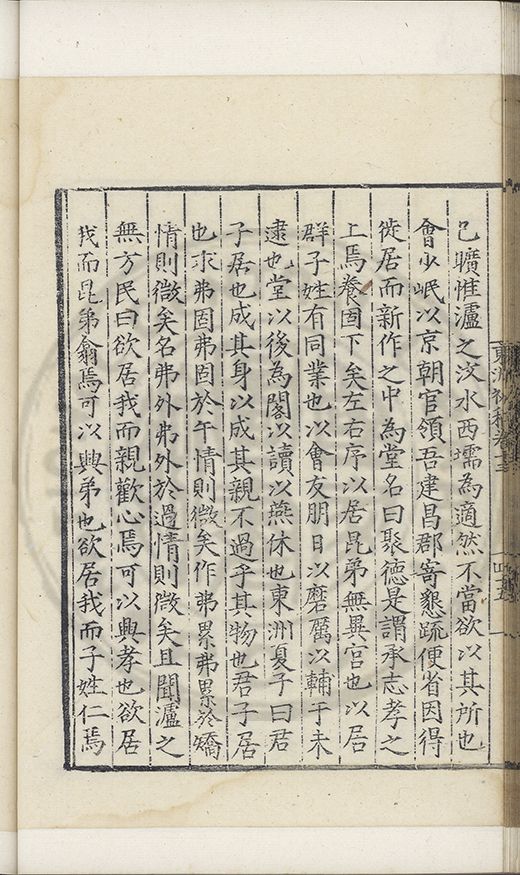 已曠惟瀘之汶水西壖為適然不當欲以其所也
會少岷以京朝官領吾建昌郡寄懇疏便省因得
徙居而新作之中為堂名曰聚德是謂承志孝之
上焉養固下矣左右序以居昆弟無異宮也以居
群子姓有同業也以會友朋日以磨厲以輔于未
逮也堂以後為閣以讀以燕休也東洲夏子曰君
子居也成其身以成其親不過乎其物也君子居
也求弗固弗固於午情則微矣作弗累弗累於矯
情則微矣名弗外弗外於過情則微矣且聞瀘之
無方民曰欲居我而親歡心焉可以興孝也欲居
我而昆弟翕焉可以興弟也欲居我而子姓仁焉
東洲初稿卷十三